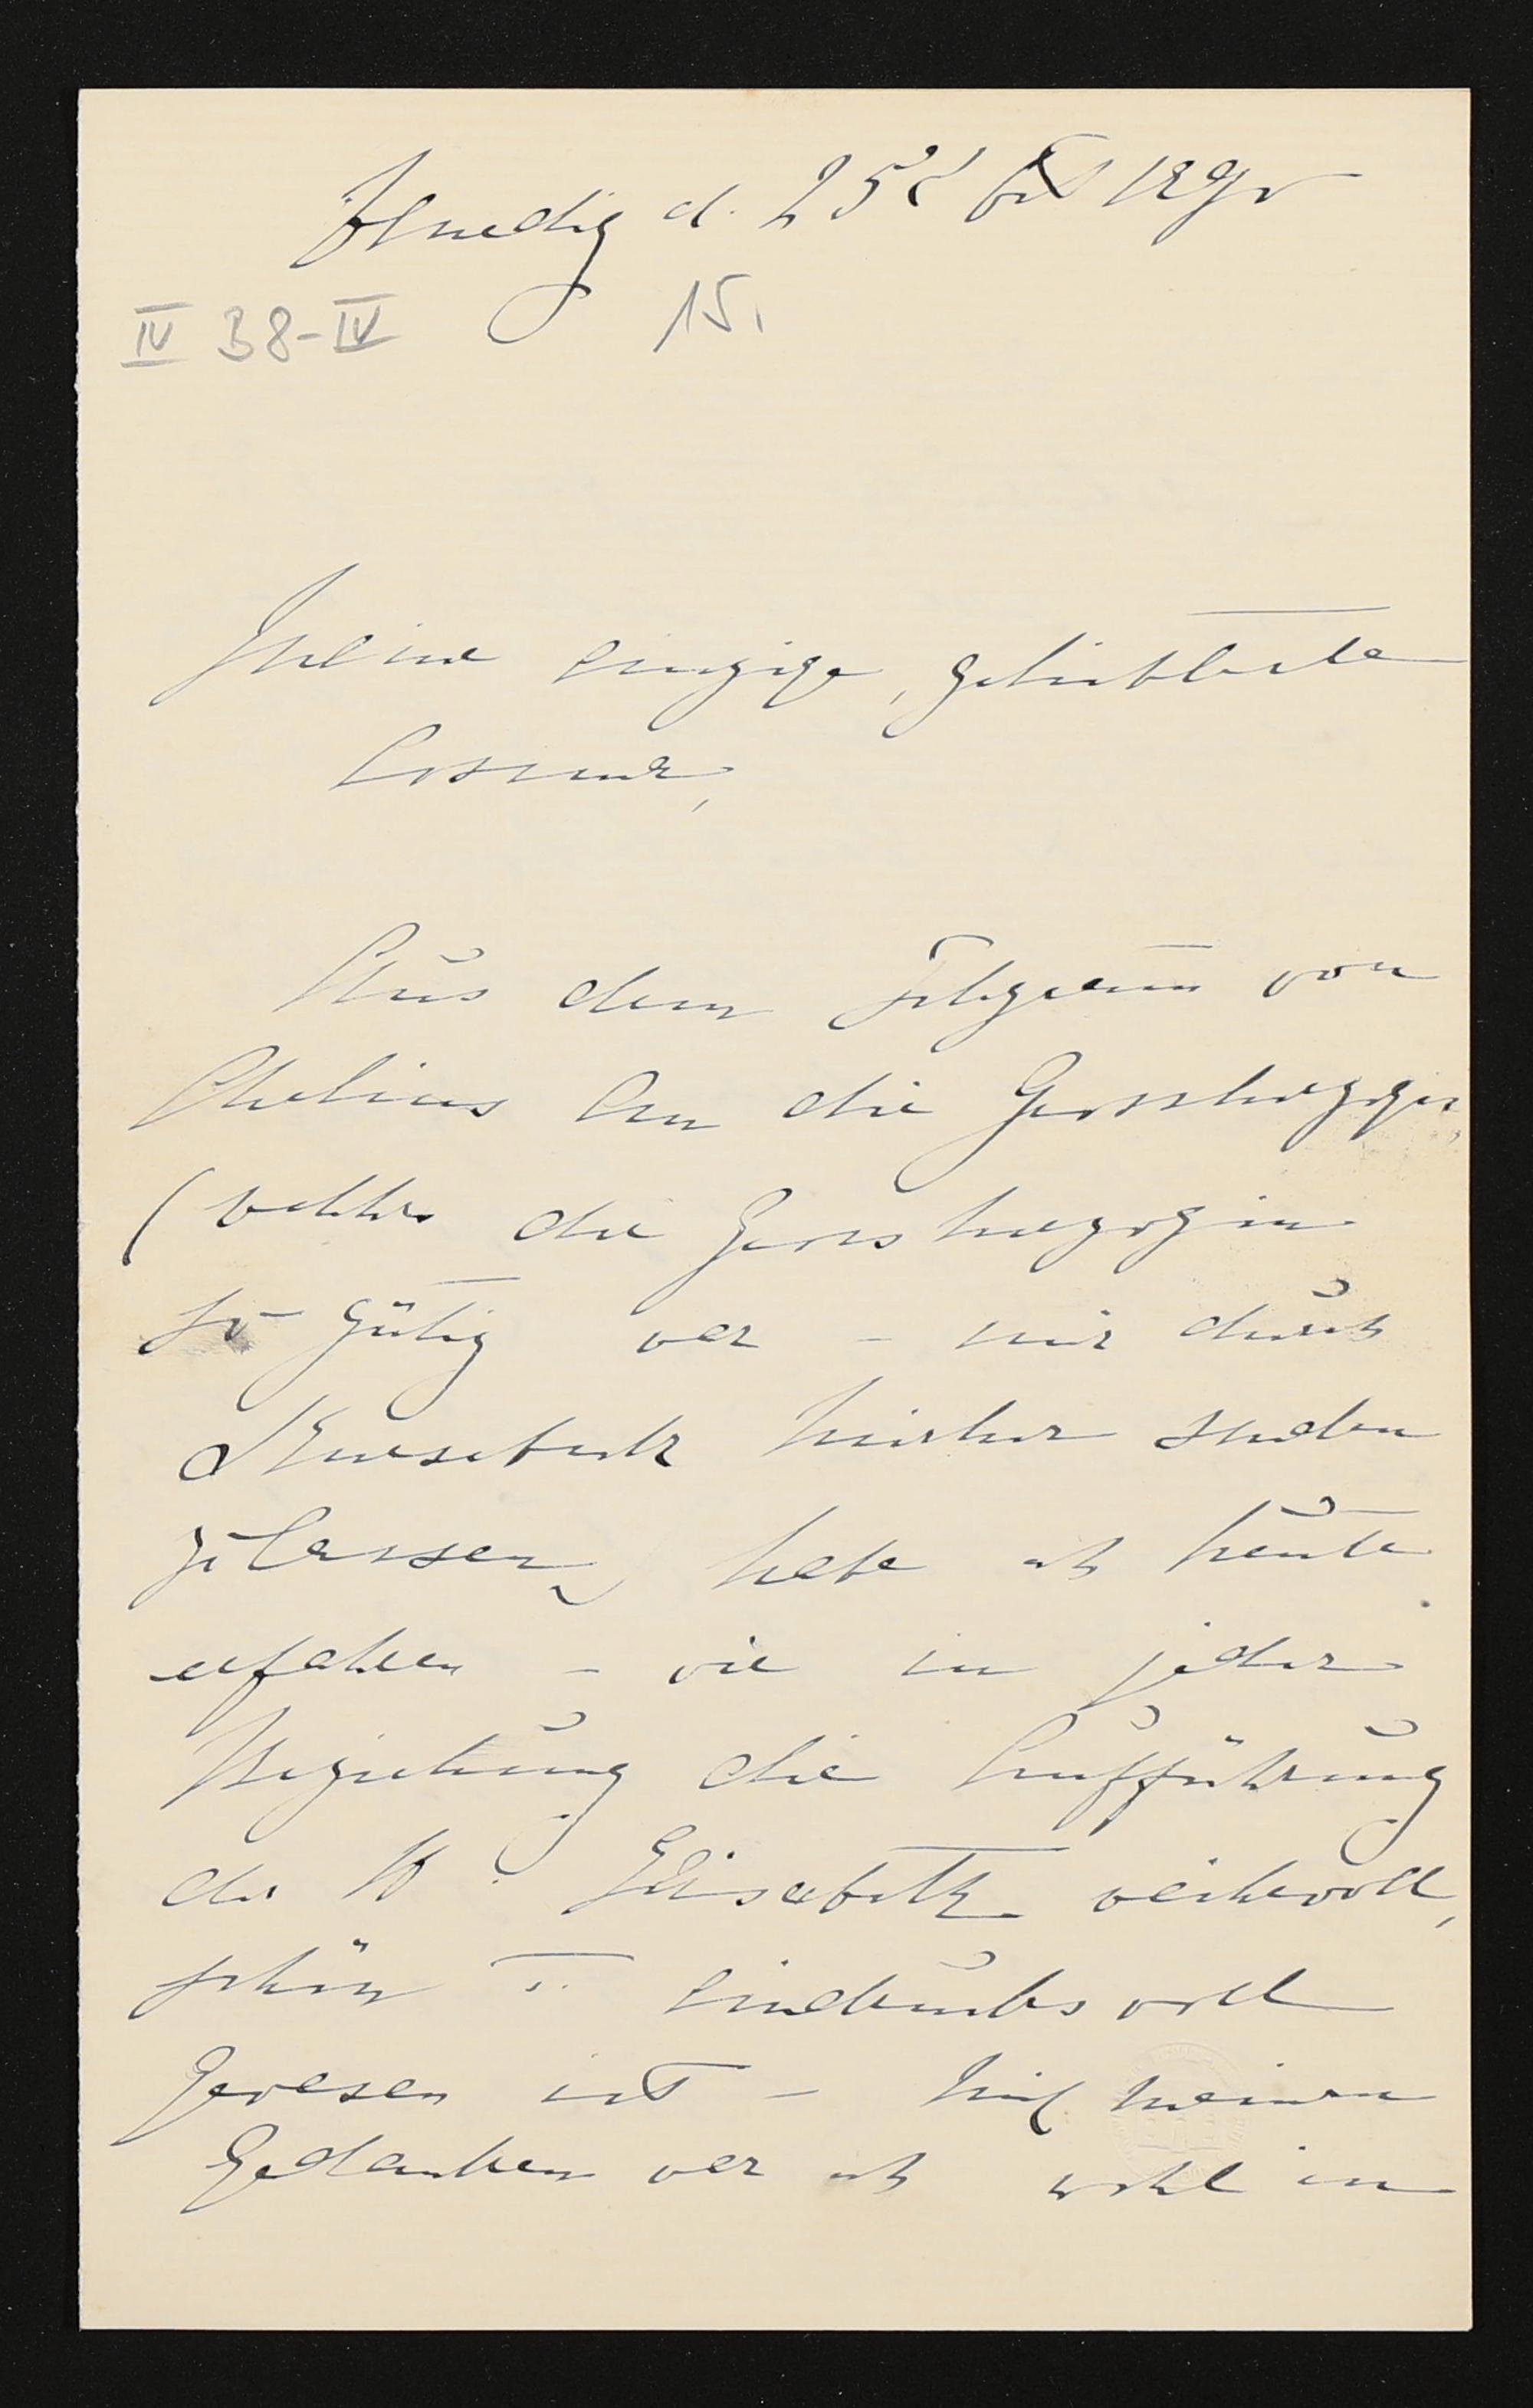 Venedig d. 25t 1890
IV 38-IV 15.
Meine einzige, geliebteste
Cosima,
Aus dem Telegramm von
Chelius an die Grossherzogin,
(welches die Grossherzogin
so gütig war – mir durch
hierher senden
zu lassen) habe ich heute
erfahren – wie in jeder
Beziehung die Aufführung
der H. Elisabeth weihevoll,
schön u. eindrucksvoll
gewesen ist – Mit meinen
Gedanken war ich wohl in